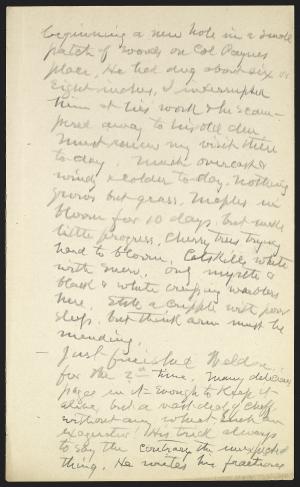 beginning a new hole in a small
patch of woods on Col Paynes
place, He had dug about six or
eight inches, I interrupted
him at his work & he scam-
pered away to his old den.
Must renew my visit there
to-day. Much overcast &
windy & colder to-day. Nothing
grows but grass. Maples in
bloom for 10 days, but make
little progress, Cherry trees trying
hard to bloom, Catskills white
with snow, only myrtle &
black & white creeping warblers
here. Still a cripple with poor
sleep, but think arm must be
mending.
— Just finished Walden
for the 2nd time. Many delicious
pages in it - enough to keep it
alive, but a vast deal of chaff
without any wheat. Such an
exagerator! His trick always
to say the contrary the unexpected
thing. He writes his